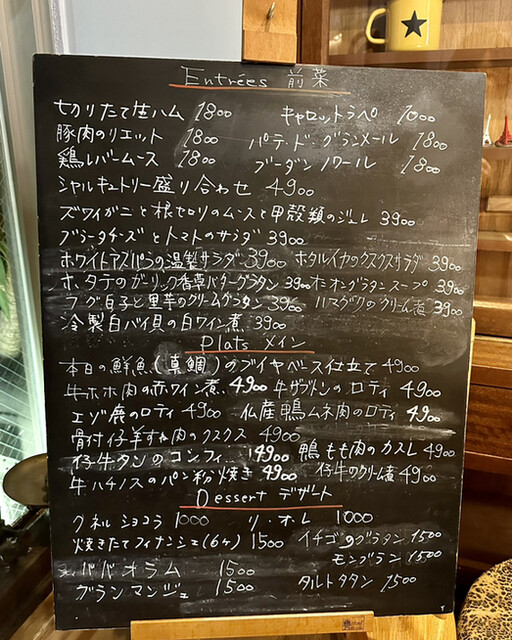 Entrées 前菜
切りたて生ハム 1800 キャロットラペ 1000
豚肉のリエット 1800 パテ・ド・グランメール 1800
鶏レバームース 1800 ブーダンノワール 1800
シャルキュトリー盛り合わせ 4900
ズワイガニと根セロリのムースと甲殻類のジュレ 3900
ブラータチーズとトマトのサラダ 3900
ホワイトアスパラの温製サラダ 3900 ホタルイカのクスクスサラダ 3900
ホタテのガーリック香草バターグラタン 3900 オニオングラタンスープ 3900
フグ白子と里芋のクリームグラタン 3900 ハマグリのクリーム煮 3900
冷製白バイ貝の白ワイン煮 3900
Plats メイン
本日の鮮魚(真鯛)のブイヤベース仕立て 4900
牛ホホ肉の赤ワイン煮 4900 牛ザブトンのロティ 4900
エゾ鹿のロティ 4900 仏産鴨ムネ肉のロティ 4900
骨付仔羊すね肉のクスクス 4900
仔牛タンのコンフィ 4900 鴨もも肉のカスレ 4900
牛ハチノスのパン粉焼き 4900 仔牛のクリーム煮 4900
Dessert デザート
クネルショコラ 1000 リ・オ・レ 1000
焼きたてフィナンシェ(6ヶ) 1500 イチゴのグラタン 1500
モンブラン 1500
ババオラム 1500
ブランマンジェ 1500 タルトタタン 1500